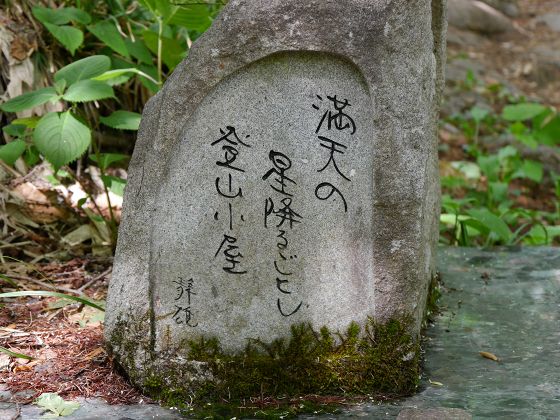 満天の
星降るごとし
登山小屋